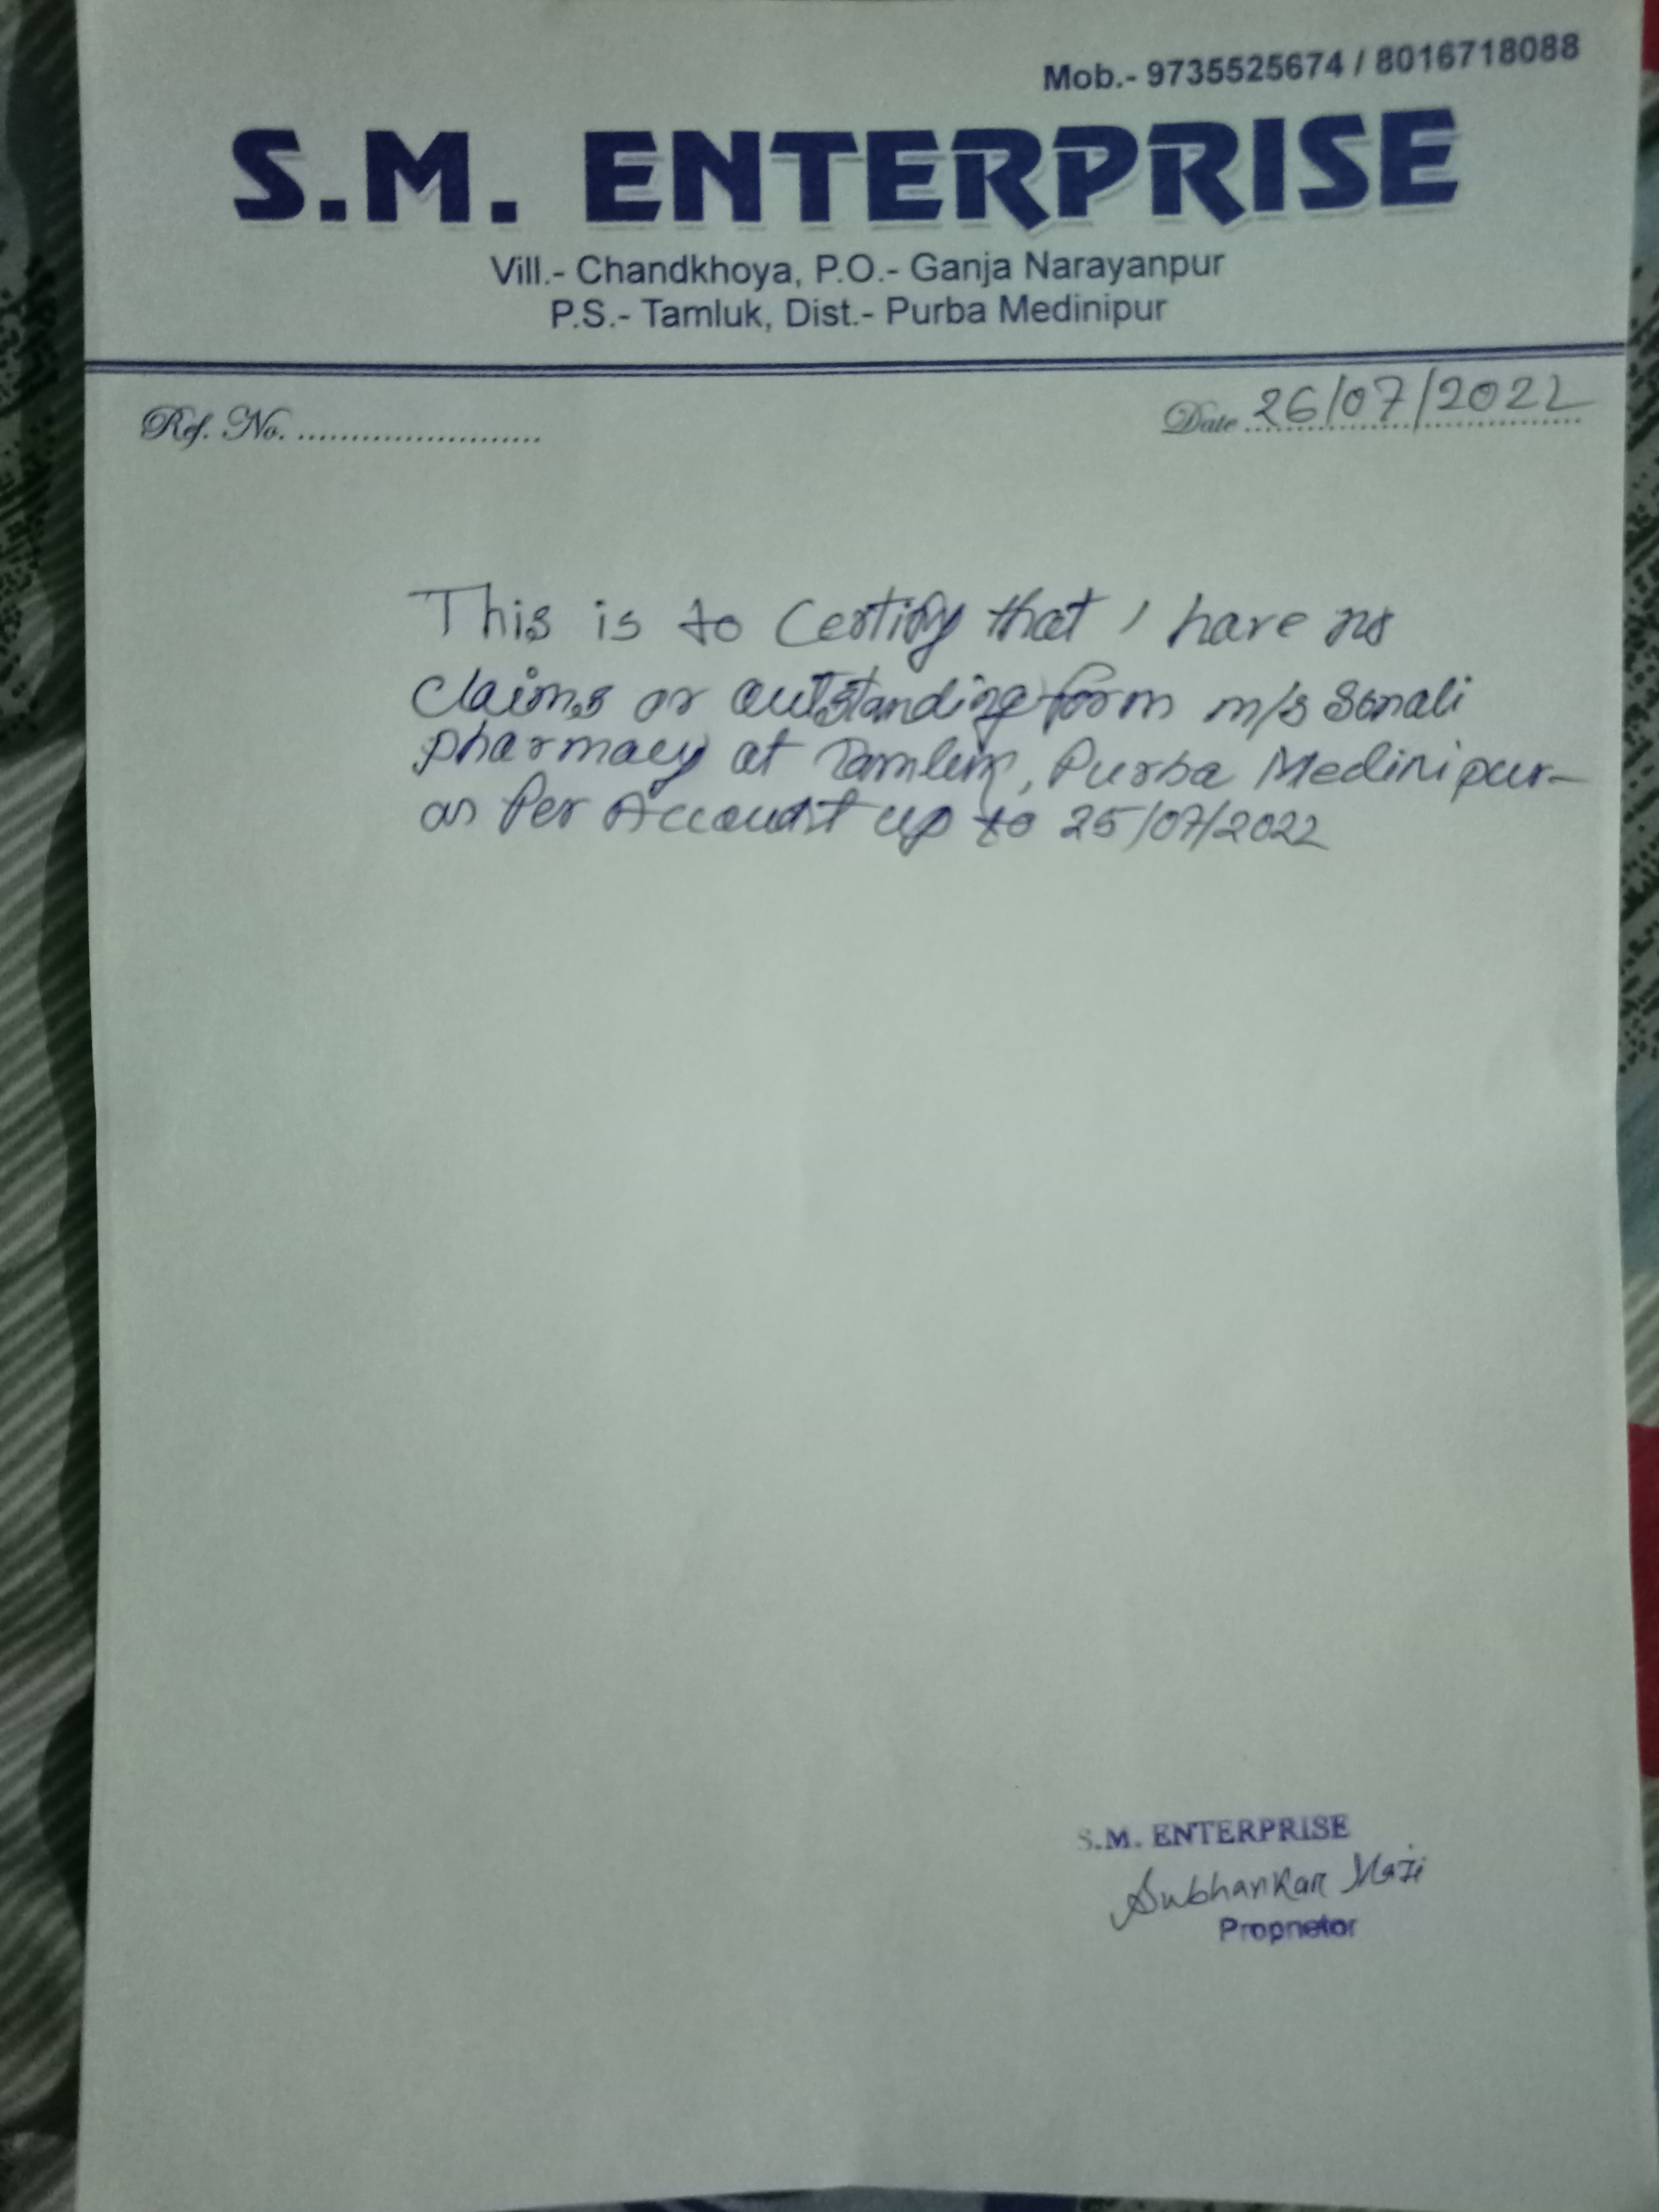 Mob.- 9735525674 / 8016718088
S.M. ENTERPRISE
Vill.- Chandkhoya, P.O.- Ganja Narayanpur
P.S.- Tamluk, Dist.- Purba Medinipur
Ref. No. ........................
Date 26/07/2022
This is to Certify that I have no
Claims or outstanding form m/s Sonali
pharmacy at Tamluk, Purba Medinipur-
as Per Account up to 25/07/2022
S.M. ENTERPRISE
Subhankar Maji
Proprietor